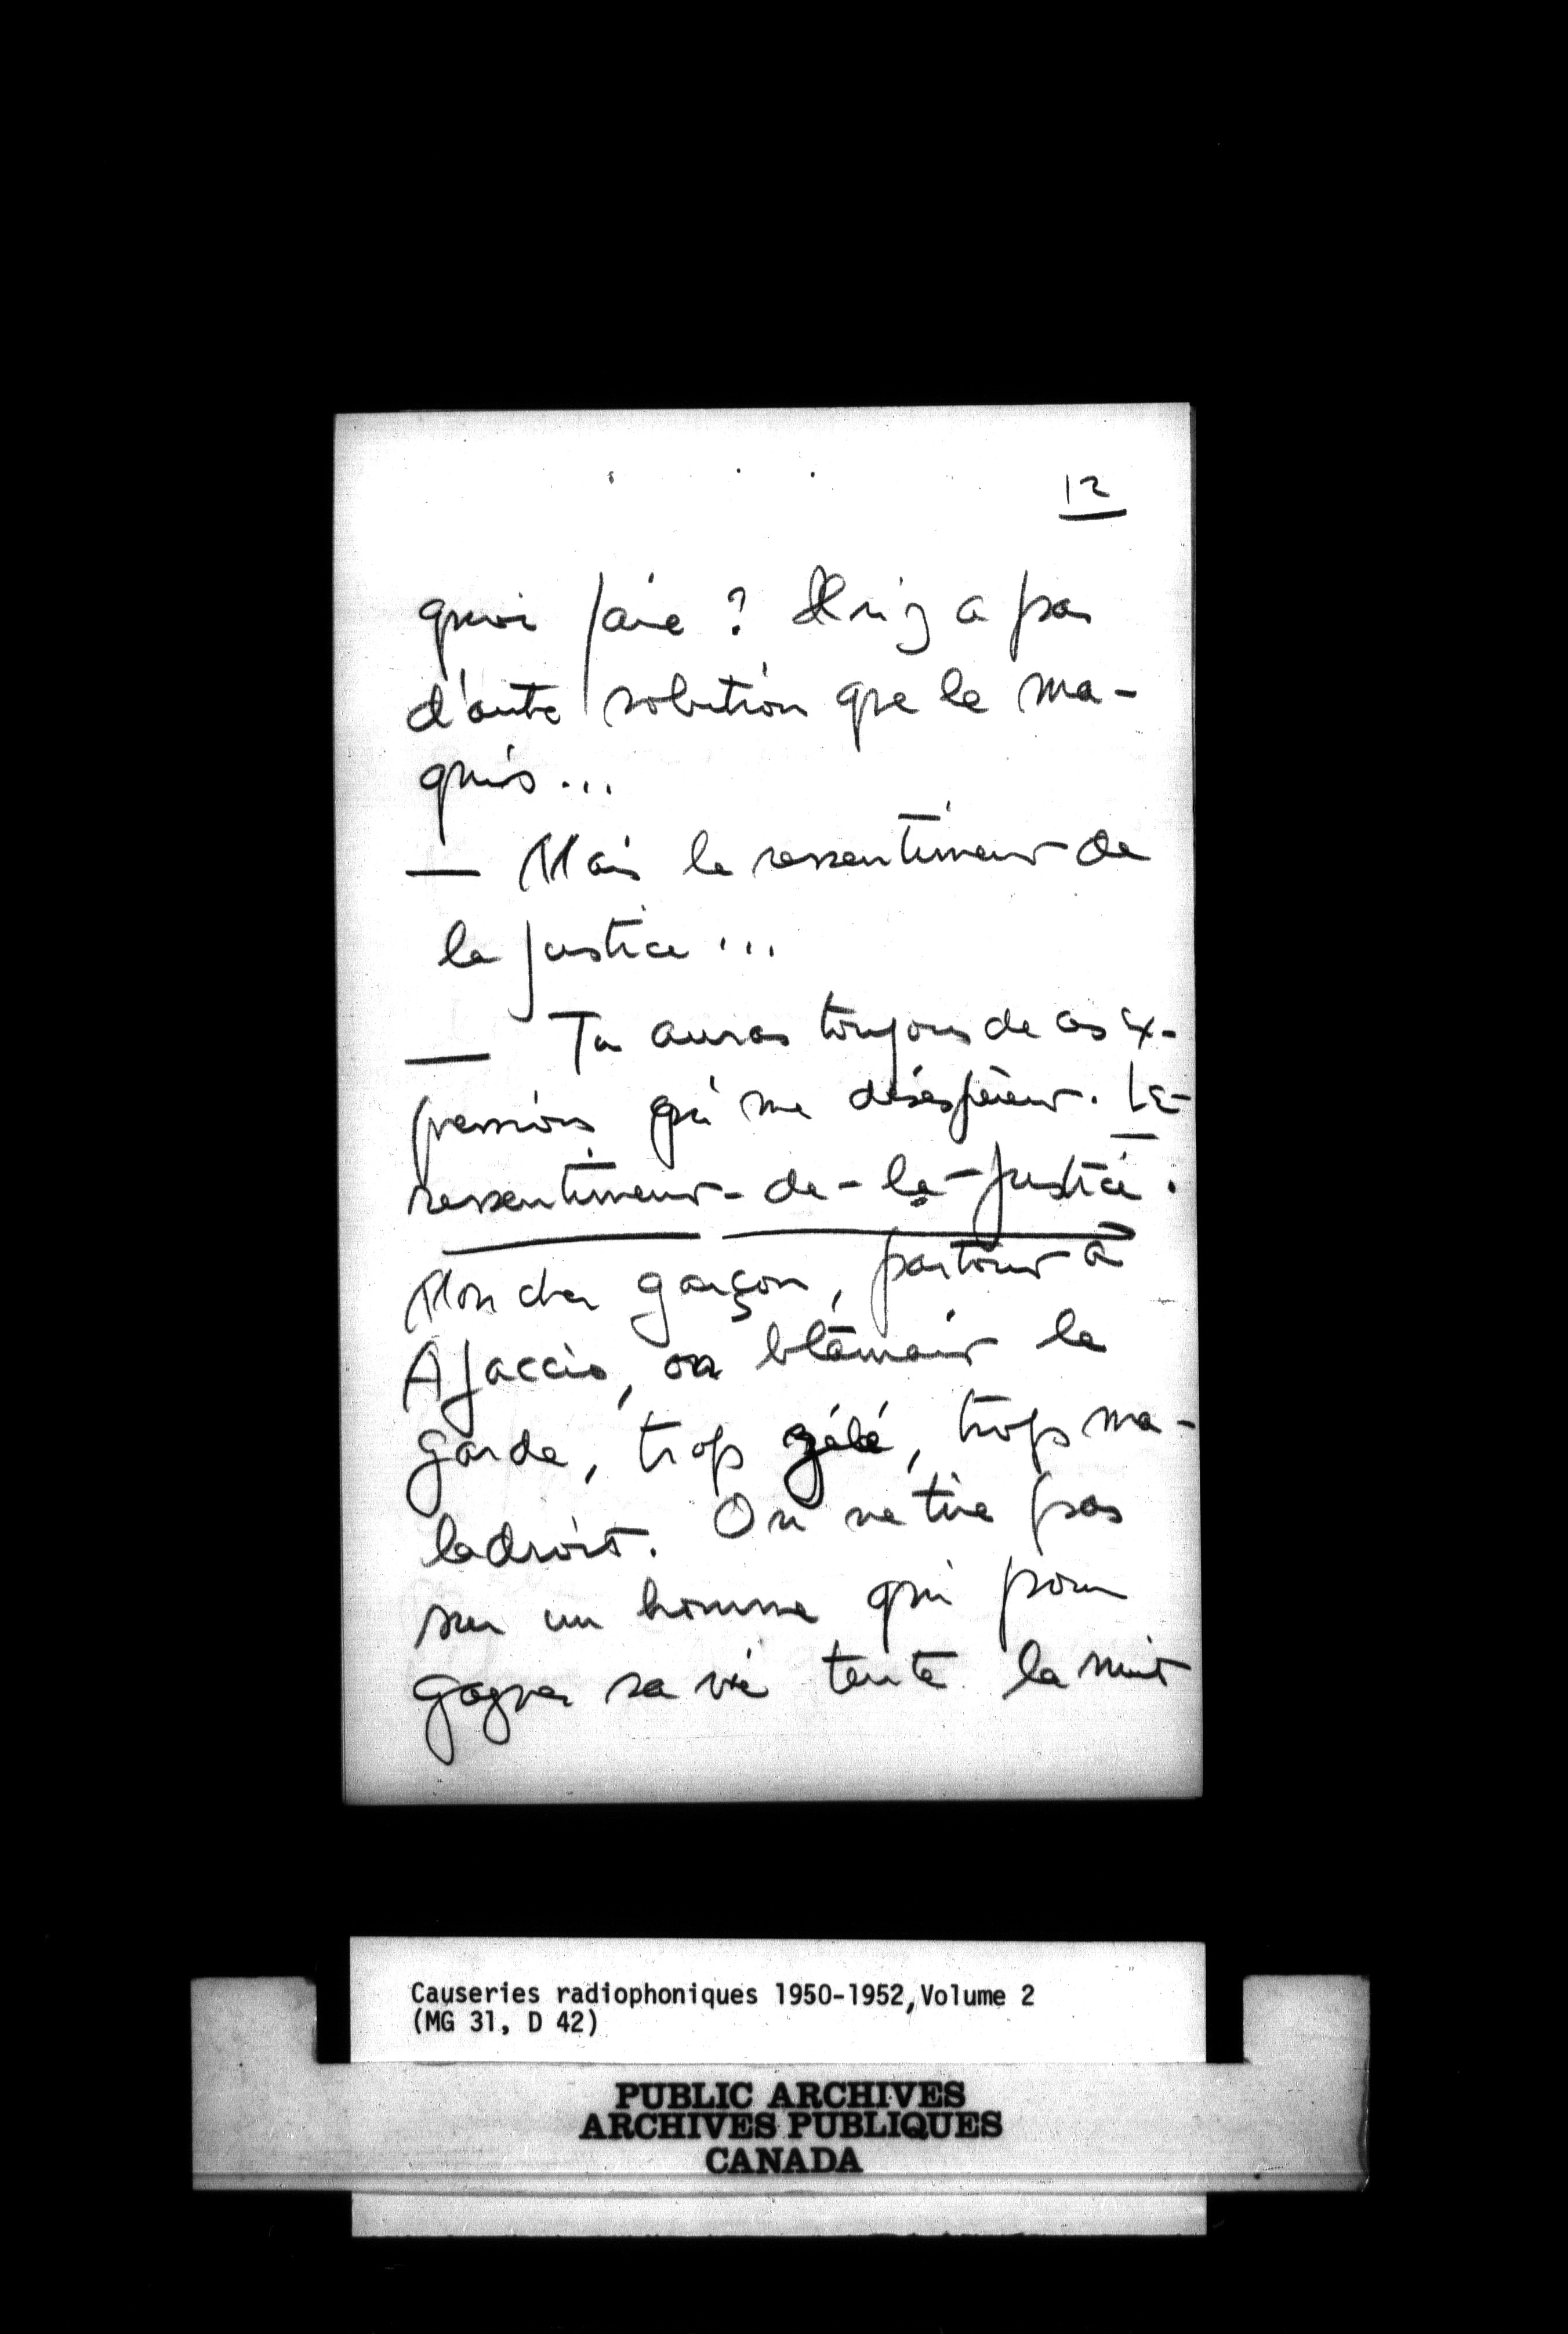 12
quoi faire ? Il n'y a pas
d'autre solution que le ma-
quis...
— Mais le ressentiment de
la justice...
— Tu auras toujours de ces ex-
pressions qui me désespèrent. Le-
ressentiment-de-la-justice.
Mon cher garçon, partout à
Ajaccio, on blâmait le
garde, trop zélé, trop ma-
ladroit. On ne tire pas
sur un homme qui pour
gagner sa vie tente la nuit
Causeries radiophoniques 1950-1952, Volume 2
(MG 31, D 42)
PUBLIC ARCHIVES
ARCHIVES PUBLIQUES
CANADA